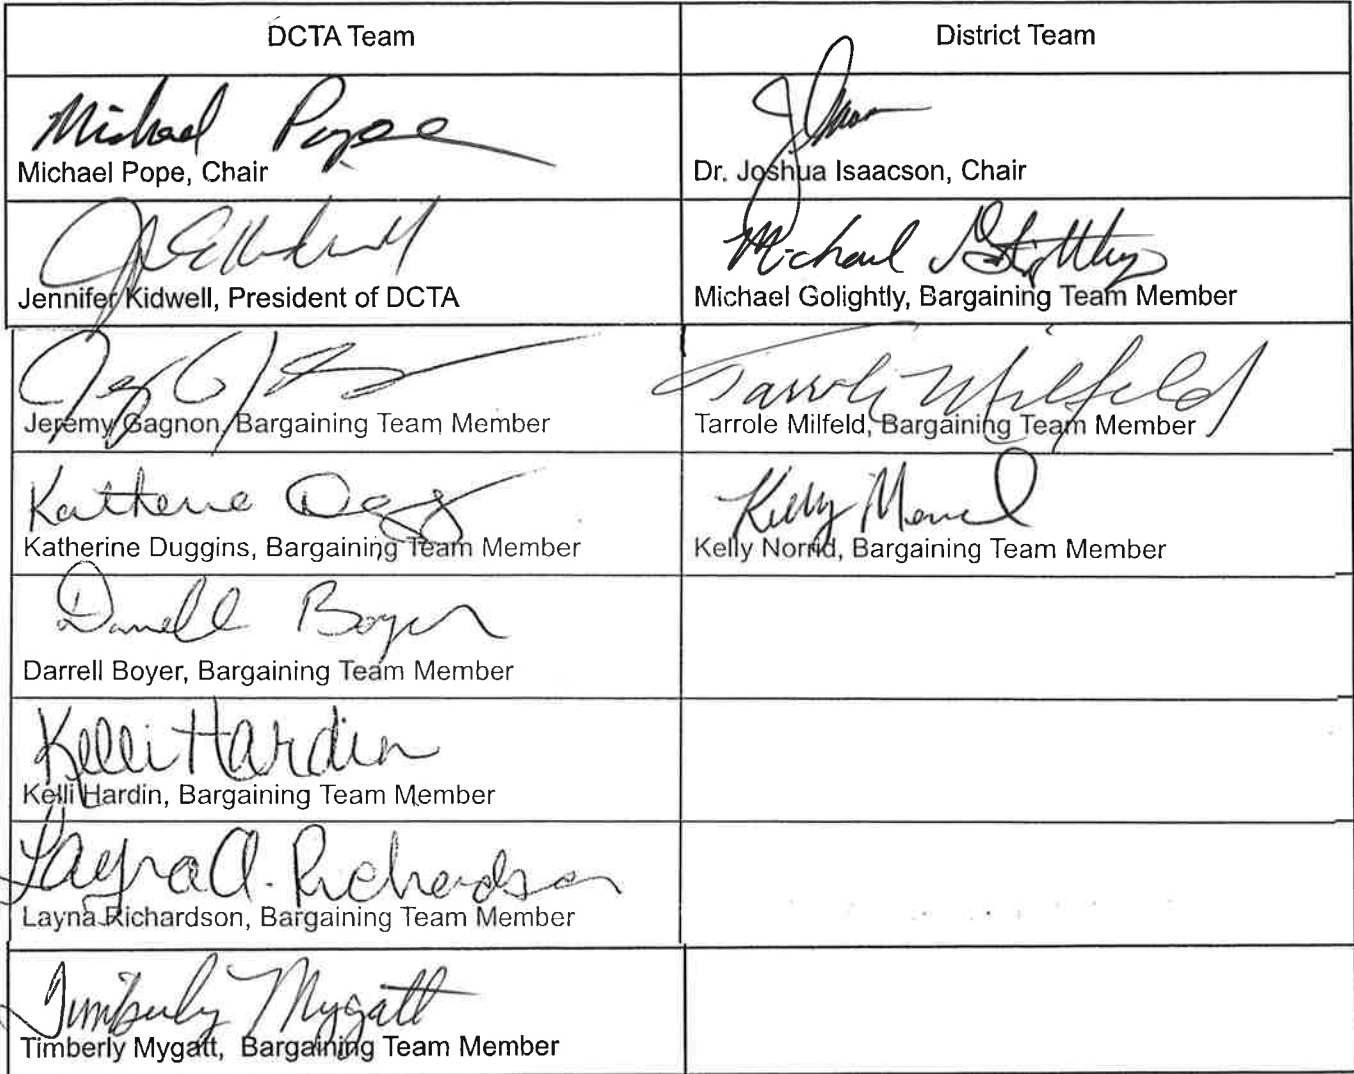 DCTA Team
District Team
Michael Pope
Michael Pope, Chair
Dr. Joshua Isaacson, Chair
Jennifer Kidwell, President of DCTA
Michael Golightly
Michael Golightly, Bargaining Team Member
Jeremy Gagnon, Bargaining Team Member
Tarrole Milfeld
Tarrole Milfeld, Bargaining Team Member
Katherine Duggins, Bargaining Team Member
Kelly Norrid, Bargaining Team Member
Darrell Boyer
Darrell Boyer, Bargaining Team Member
Kelli Hardin
Kelli Hardin, Bargaining Team Member
Layna A. Richardson
Layna Richardson, Bargaining Team Member
Timberly Mygatt
Timberly Mygatt, Bargaining Team Member